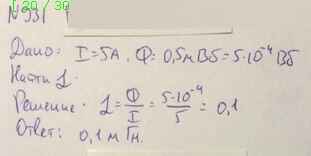 20 / 30
№931
Дано: I=5А, Ф=0,5мВб=5·10⁻⁴Вб
Найти L
Решение: L=Ф/I=5·10⁻⁴/5=0,1
Ответ: 0,1 м Гн.